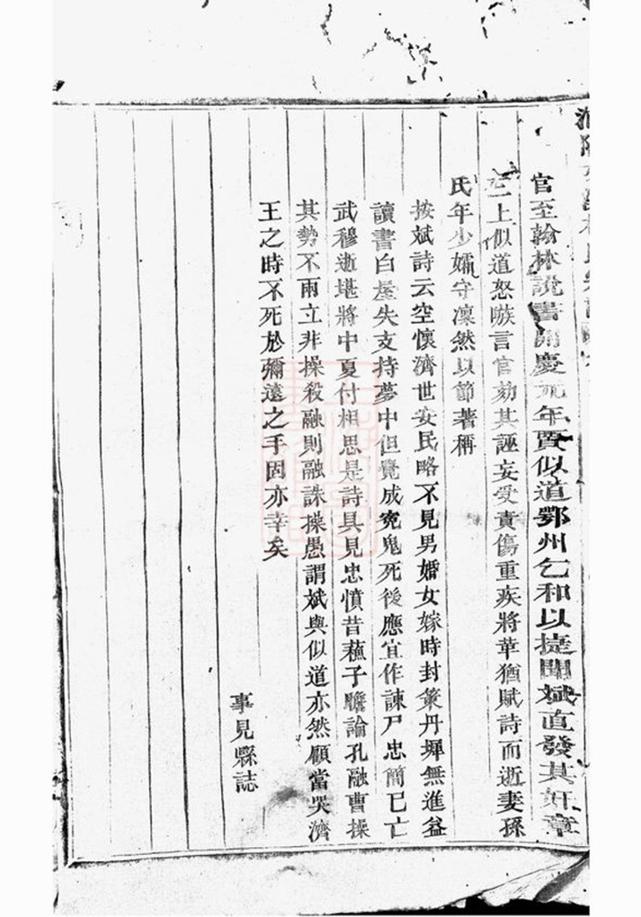 官至翰林說書開慶元年賈似道鄂州乞和以捷聞斌直發其奸章
三上似道怒嗾言官劾其誣妄受責傷重疾將華猶賦詩而逝妻孫
氏年少孀守凜然以節著稱
按斌詩云空懷濟世安民略不見男婚女嫁時封策丹墀無進益
讀書白屋失支持夢中但覺成寃鬼死後應宜作諫尸忠簡已亡
武穆逝堪將中夏付相思是詩具見忠憤昔蘓子瞻論孔融曹操
其勢不兩立非操殺融則融誅操愚謂斌與似道亦然顧當吴濟
王之時不死於彌遠之手因亦幸矣
事見縣誌